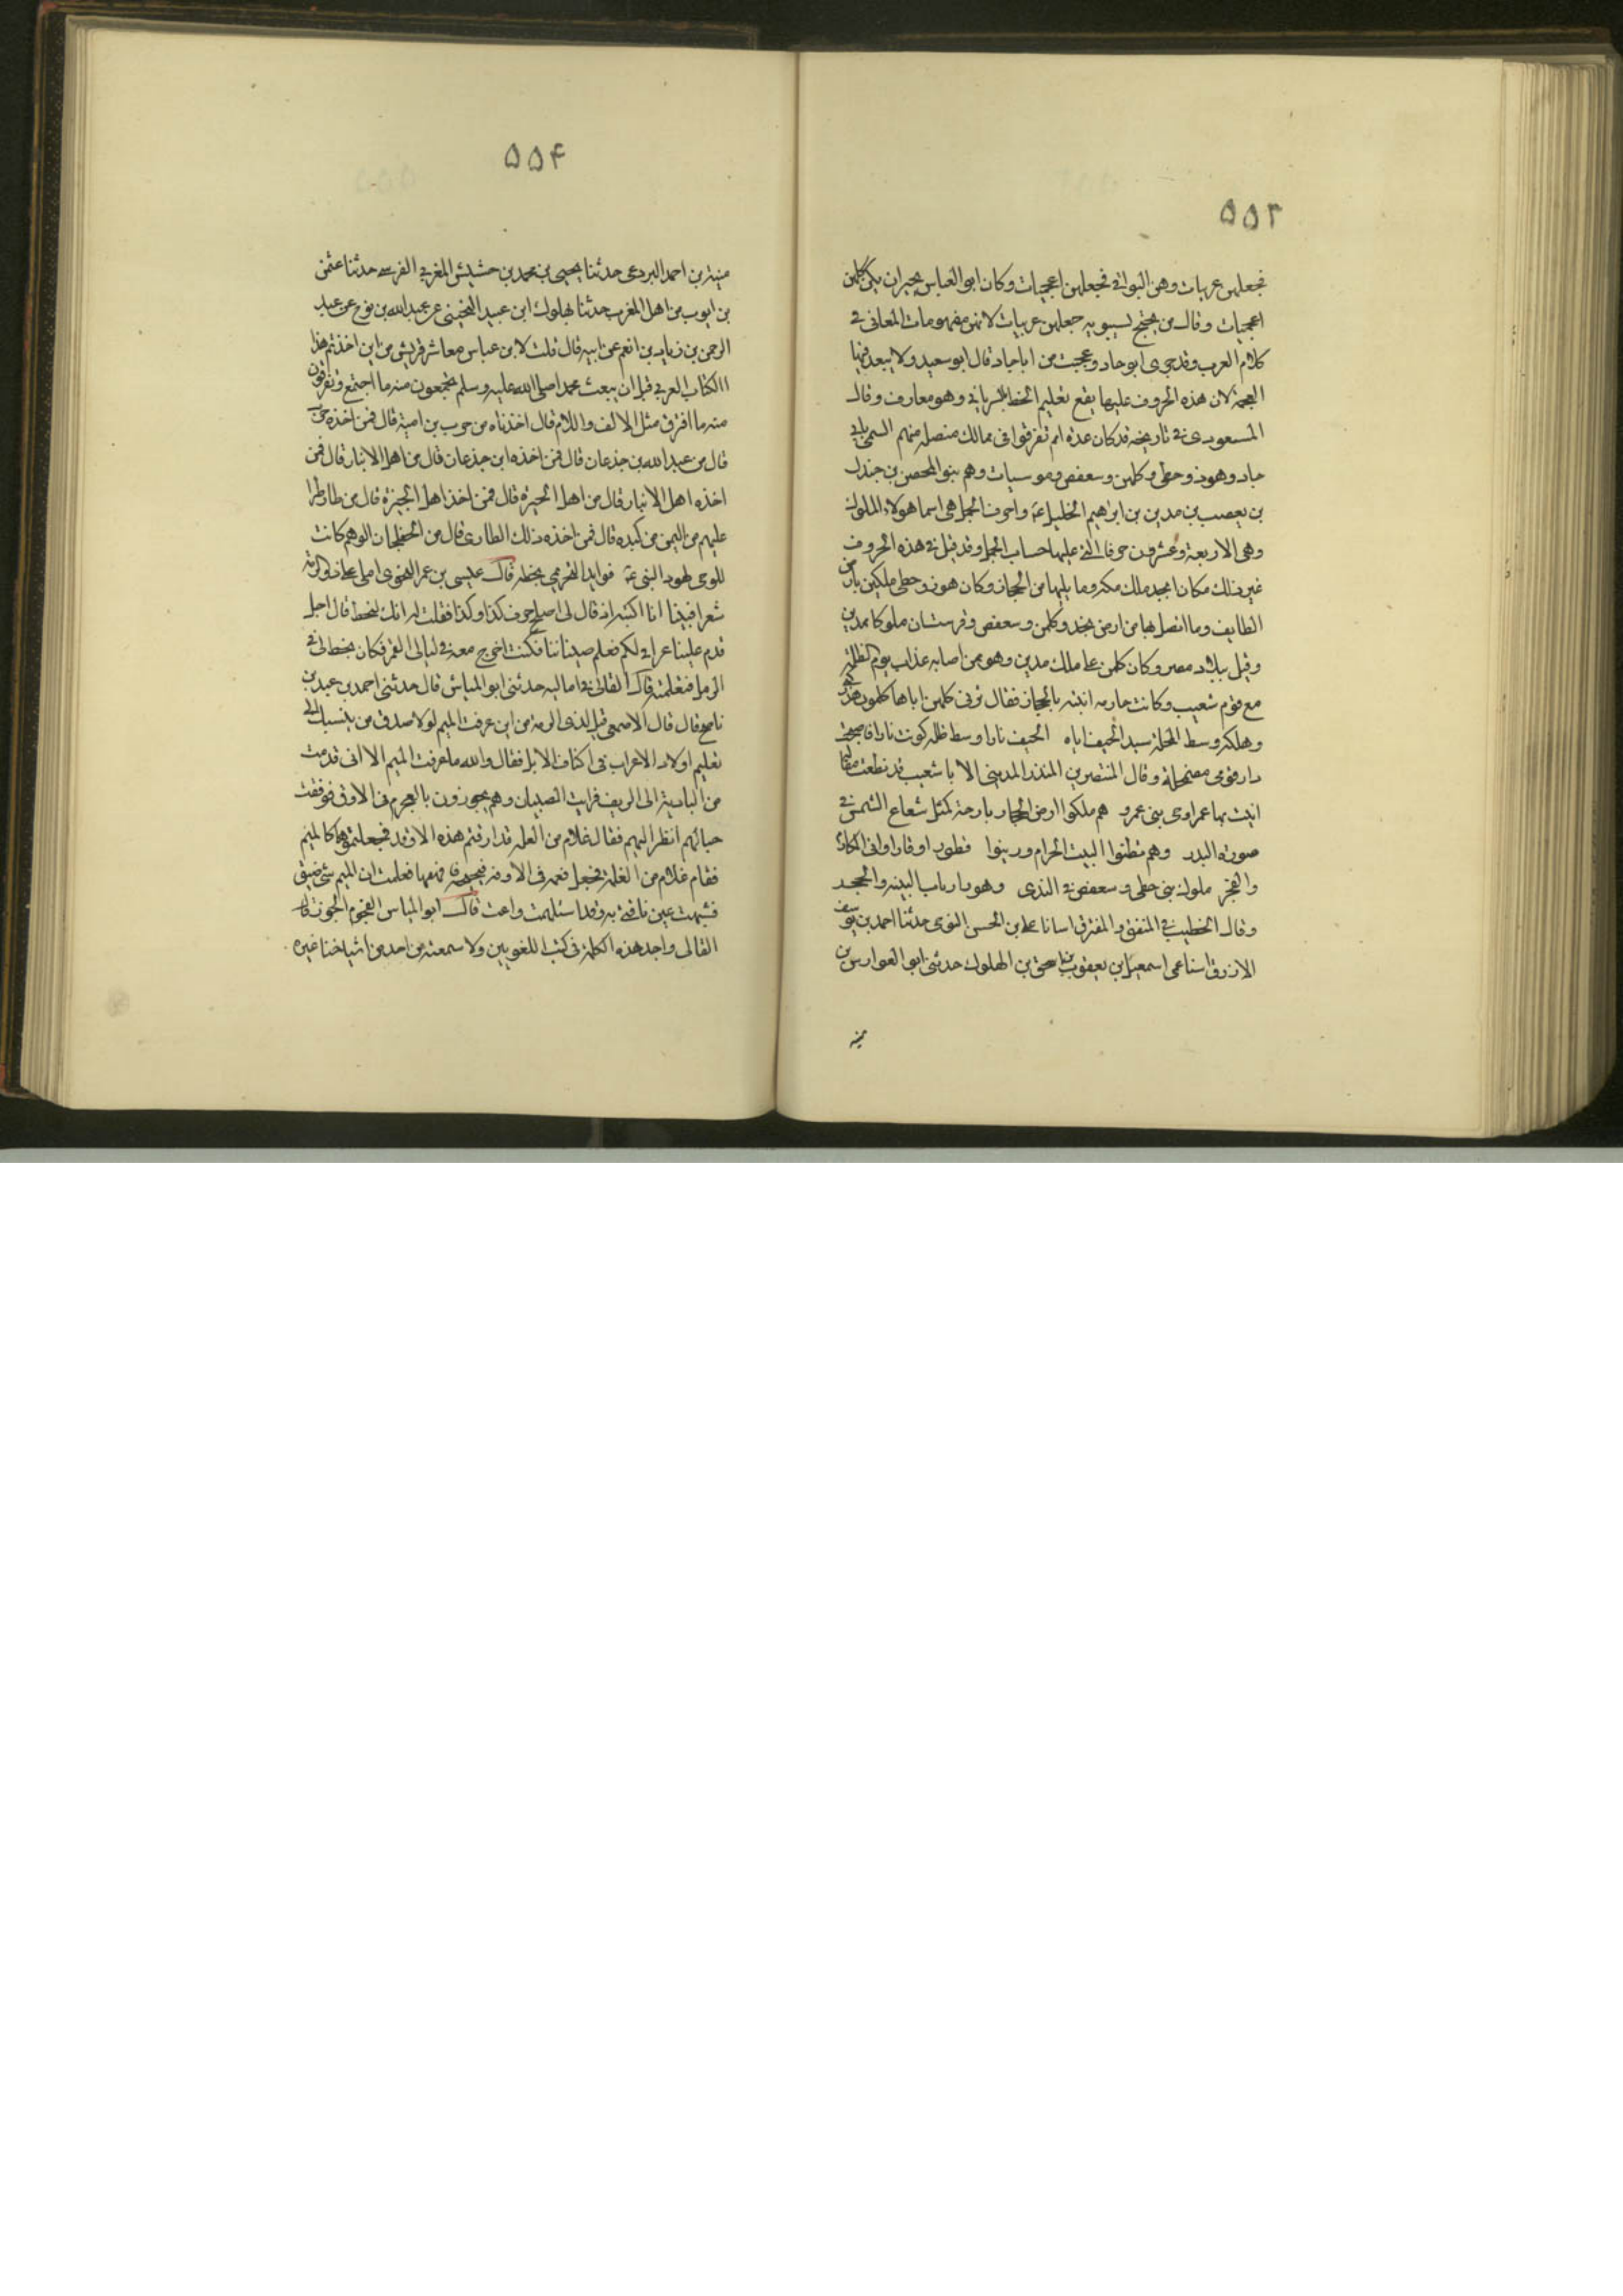 ۵۵۳
فجعلهن عربيات وهن البواقى فجعلهن اعجميات وكان ابو العباس يجيز ان يكن كلهن
اعجميات وقال من يحتج لسيبويه جعلهن عربيات لانهن مفهومات المعانى فى
كلام العرب وقد جرى ابو جاد وعجبت من ابا جاد قال ابو سعيد ولا يبعد فيها
العجمة لان هذه الحروف عليها يقع تعليم الخط السريانى وهو معارف وقال
المسعودى فى تاريخه قد كان عدة امم تفرقوا فى ممالك متصلة منهم المسمى بابى
جاد وهوز وحطى وكلمن وسعفص وقرسيات وهم بنو المحصن بن جندل
بن يعصب بن مدين بن ابراهيم الخليل عم واحرف الجمل هى اسما هولاء الملوك
وهى الاربعة وعشرون حرفا التى عليها حساب الجمل وقد قيل فى هذه الحروف
غير ذلك فكان ابجد ملك مكه وما يليها من الحجاز وكان هوز وحطى ملكين بارض
الطايف وما اتصل بها من ارض نجد وكلمن وسعفص وقرشتان ملوكا بمدين
وقيل ببلاد مصر وكان كلمن على ملك مدين وهو ممن اصابه عذاب يوم الظلة
مع قوم شعيب وكانت جاريه ابنته بالحجاز فقال ترثى كلمن اباها كلمون هدركنى
وهلكه وسط المحلة سيد الحيف اباه الحيف نارا وسط ظله كونت نارا فاصبحت
دار قومى مضمحلة وقال المنتصر بن المنذر المدينى الا يا شعيب قد نطقت مقالة
اتيت بها عمرا وى بنى عمرو هم ملكوا ارض الحجاز بارجه كمثل شعاع الشمس فى
صورة البدر وهم قطنوا البيت الحرام ورينوا قطورا وفازوا فى المكارم
والفخر ملوك بنى حطى وسعفص فى الندى وهوز ارباب البينه والحجر
وقال الخطيب فى المتفق والمفترق اسانا على بن الحسن التنوى حدثنا احمد بن يوسف
الازرق اسنا عمى اسمعيل بن يعقوب بن اسحق بن البهلول حدثنى ابو الفوارس بن
منبه
۵۵۴
منبه بن احمد البردعى حدثنا يحيى بن محمد بن حشيش المغربى الفرسى حدثنا عثمن
بن ايوب من اهل المغرب حدثنا بهلول ابن عبيد النجيبى عن عبد الله بن فروخ عن عبد
الرحمن بن زياد بن انعم عن ابيه قال قلت لابن عباس معاشر قريش من اين اخذتم هذا
االكتاب العربى قبل ان يبعث محمدا صلى الله عليه وسلم تجمعون منه ما اجتمع وتفرقون
منه ما افترق مثل الالف واللام قال اخذناه من حرب بن امية قال فمن اخذه حرب
قال من عبد الله بن جذعان قال فمن اخذه ابن جذعان قال من اهل الانبار قال فمن
اخذه اهل الانبار قال من اهل الحيرة قال فمن اخذ اهل الحيرة قال من طار طرا
عليهم من اليمن من كنده قال فمن اخذه ذلك الطارى قال من الخفلجان الوهم كاتب
للوحى لهود النبى عم فوايد النجرمى بخطه قال عيسى بن عمر النحوى املى على ذو الرمة
شعرا فبينا انا اكتبه اذ قال لى اصلح حرف كذا وكذا فقلت له انك لتخط قال اجل
قدم علينا عراقى لكم فعلم صبياننا فكنت اخرج معه فى ليالى القمر فكان يخط لى فى
الرمل فتعلمته قال القالى فى اماليه حدثنى ابو المياس قال حدثنى احمد بن عبيد بن
ناصح قال قال الاصمعى قيل لذى الرمة من اين عرفت الميم لولا صدق من ينسبك الى
تعليم اولاد الاعراب فى اكتاف الابل فقال والله ما عرفت الميم الا انى قدمت
من البادية الى الريف فرايت الصبيان وهم يجوزون بالفجرم فى الاوق فوقفت
حيالهم انظر اليهم فقال غلام من الغلمه قد ازقتم هذه الاوقه فجعلتموها كالميم
فقام غلام من الغلمه فجعل فمه فى الاوقه فنجنجه فافهقها فعلمت ان الميم شى ضيق
فشبهت عين ناقتى به وقد اسلهمت واعيت قال ابو المياس الفجرم الجوز قال
القالى ولم اجد هذه الكلمة فى كتب اللغويين ولا سمعته من احد من اشياخنا غيره